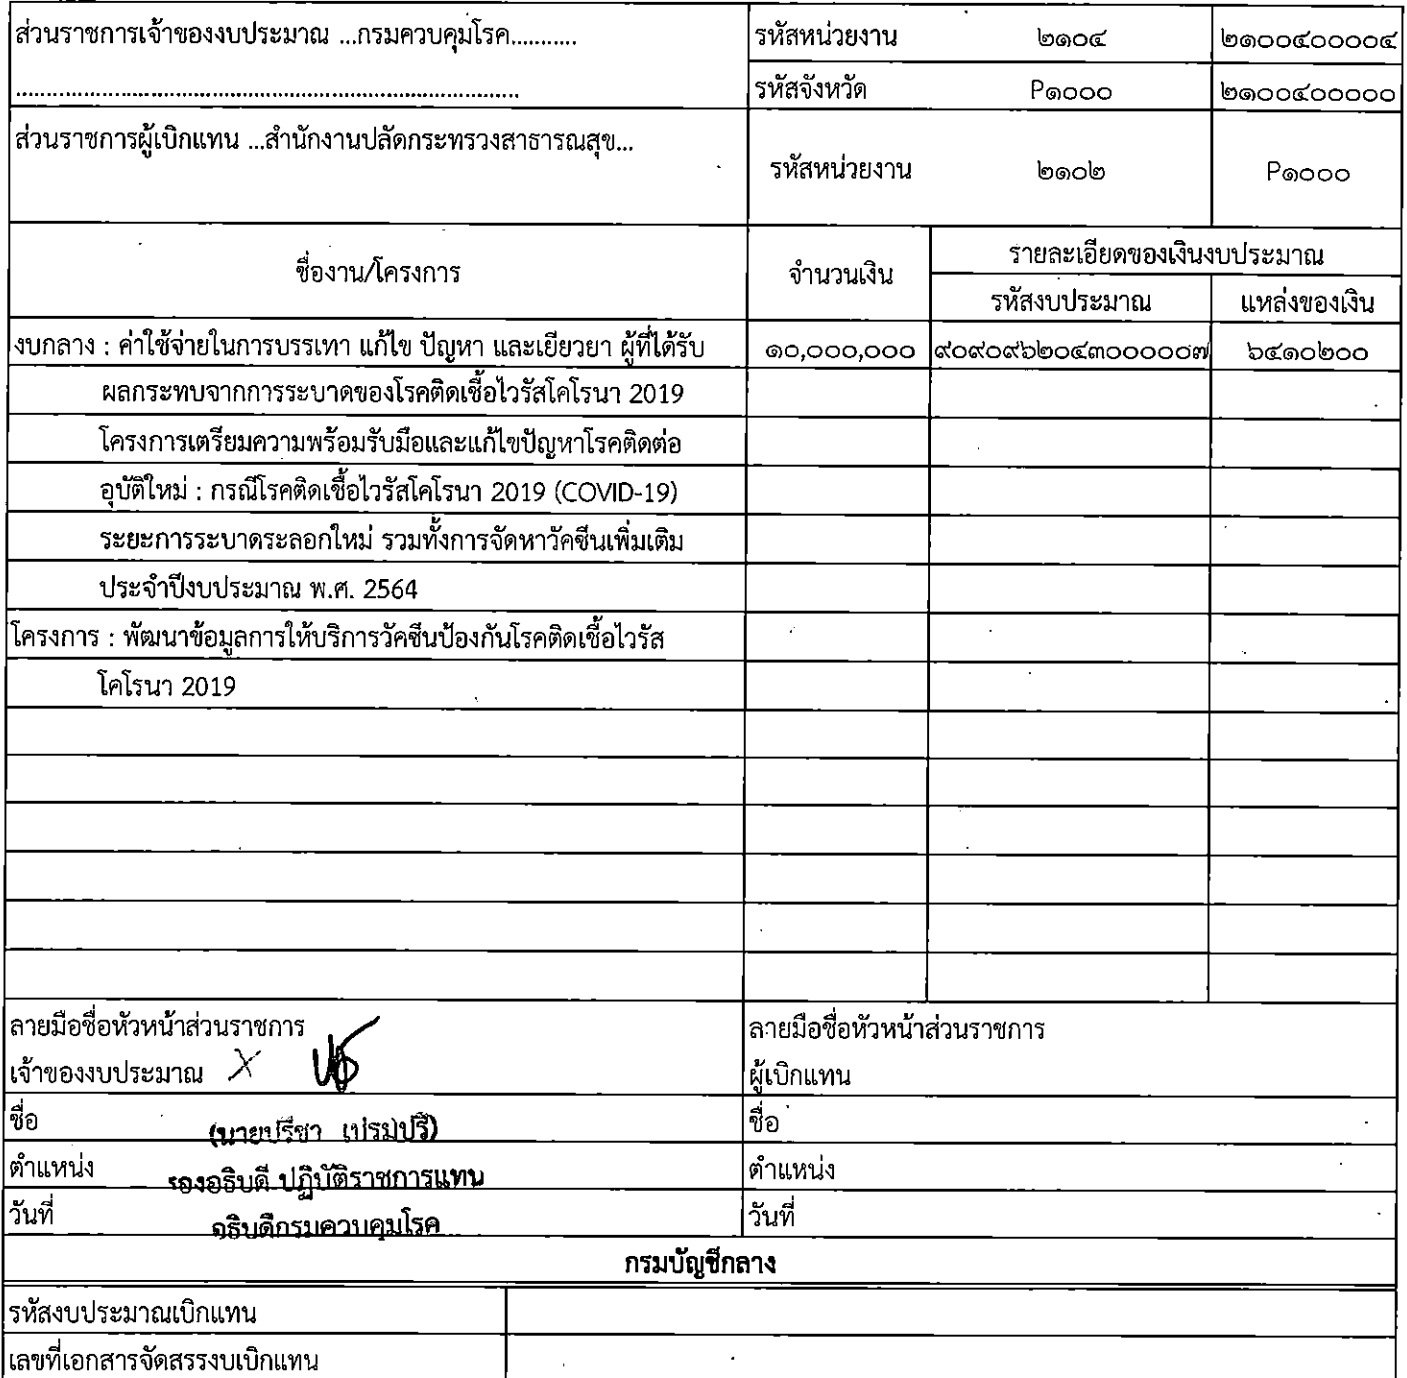 ส่วนราชการเจ้าของงบประมาณ ...กรมควบคุมโรค........... รหัสหน่วยงาน ๒๑๐๔ ๒๑๐๐๔๐๐๐๐๔
.................................................................................... รหัสจังหวัด P๑๐๐๐ ๒๑๐๐๔๐๐๐๐๐
ส่วนราชการผู้เบิกแทน ...สำนักงานปลัดกระทรวงสาธารณสุข...
รหัสหน่วยงาน ๒๑๐๒ P๑๐๐๐
ชื่องาน/โครงการ จำนวนเงิน รายละเอียดของเงินงบประมาณ
รหัสงบประมาณ แหล่งของเงิน
งบกลาง : ค่าใช้จ่ายในการบรรเทา แก้ไข ปัญหา และเยียวยา ผู้ที่ได้รับ ๑๐,๐๐๐,๐๐๐ ๙๐๙๐๙๖๒๐๔๓๐๐๐๐๐๗ ๖๔๑๐๒๐๐
ผลกระทบจากการระบาดของโรคติดเชื้อไวรัสโคโรนา 2019
โครงการเตรียมความพร้อมรับมือและแก้ไขปัญหาโรคติดต่อ
อุบัติใหม่ : กรณีโรคติดเชื้อไวรัสโคโรนา 2019 (COVID-19)
ระยะการระบาดระลอกใหม่ รวมทั้งการจัดหาวัคซีนเพิ่มเติม
ประจำปีงบประมาณ พ.ศ. 2564
โครงการ : พัฒนาข้อมูลการให้บริการวัคซีนป้องกันโรคติดเชื้อไวรัส
โคโรนา 2019
ลายมือชื่อหัวหน้าส่วนราชการ
เจ้าของงบประมาณ X
ลายมือชื่อหัวหน้าส่วนราชการ
ผู้เบิกแทน
ชื่อ (นายปรีชา เปรมปรี) ชื่อ
ตำแหน่ง รองอธิบดี ปฏิบัติราชการแทน ตำแหน่ง
วันที่ อธิบดีกรมควบคุมโรค วันที่
กรมบัญชีกลาง
รหัสงบประมาณเบิกแทน
เลขที่เอกสารจัดสรรงบเบิกแทน